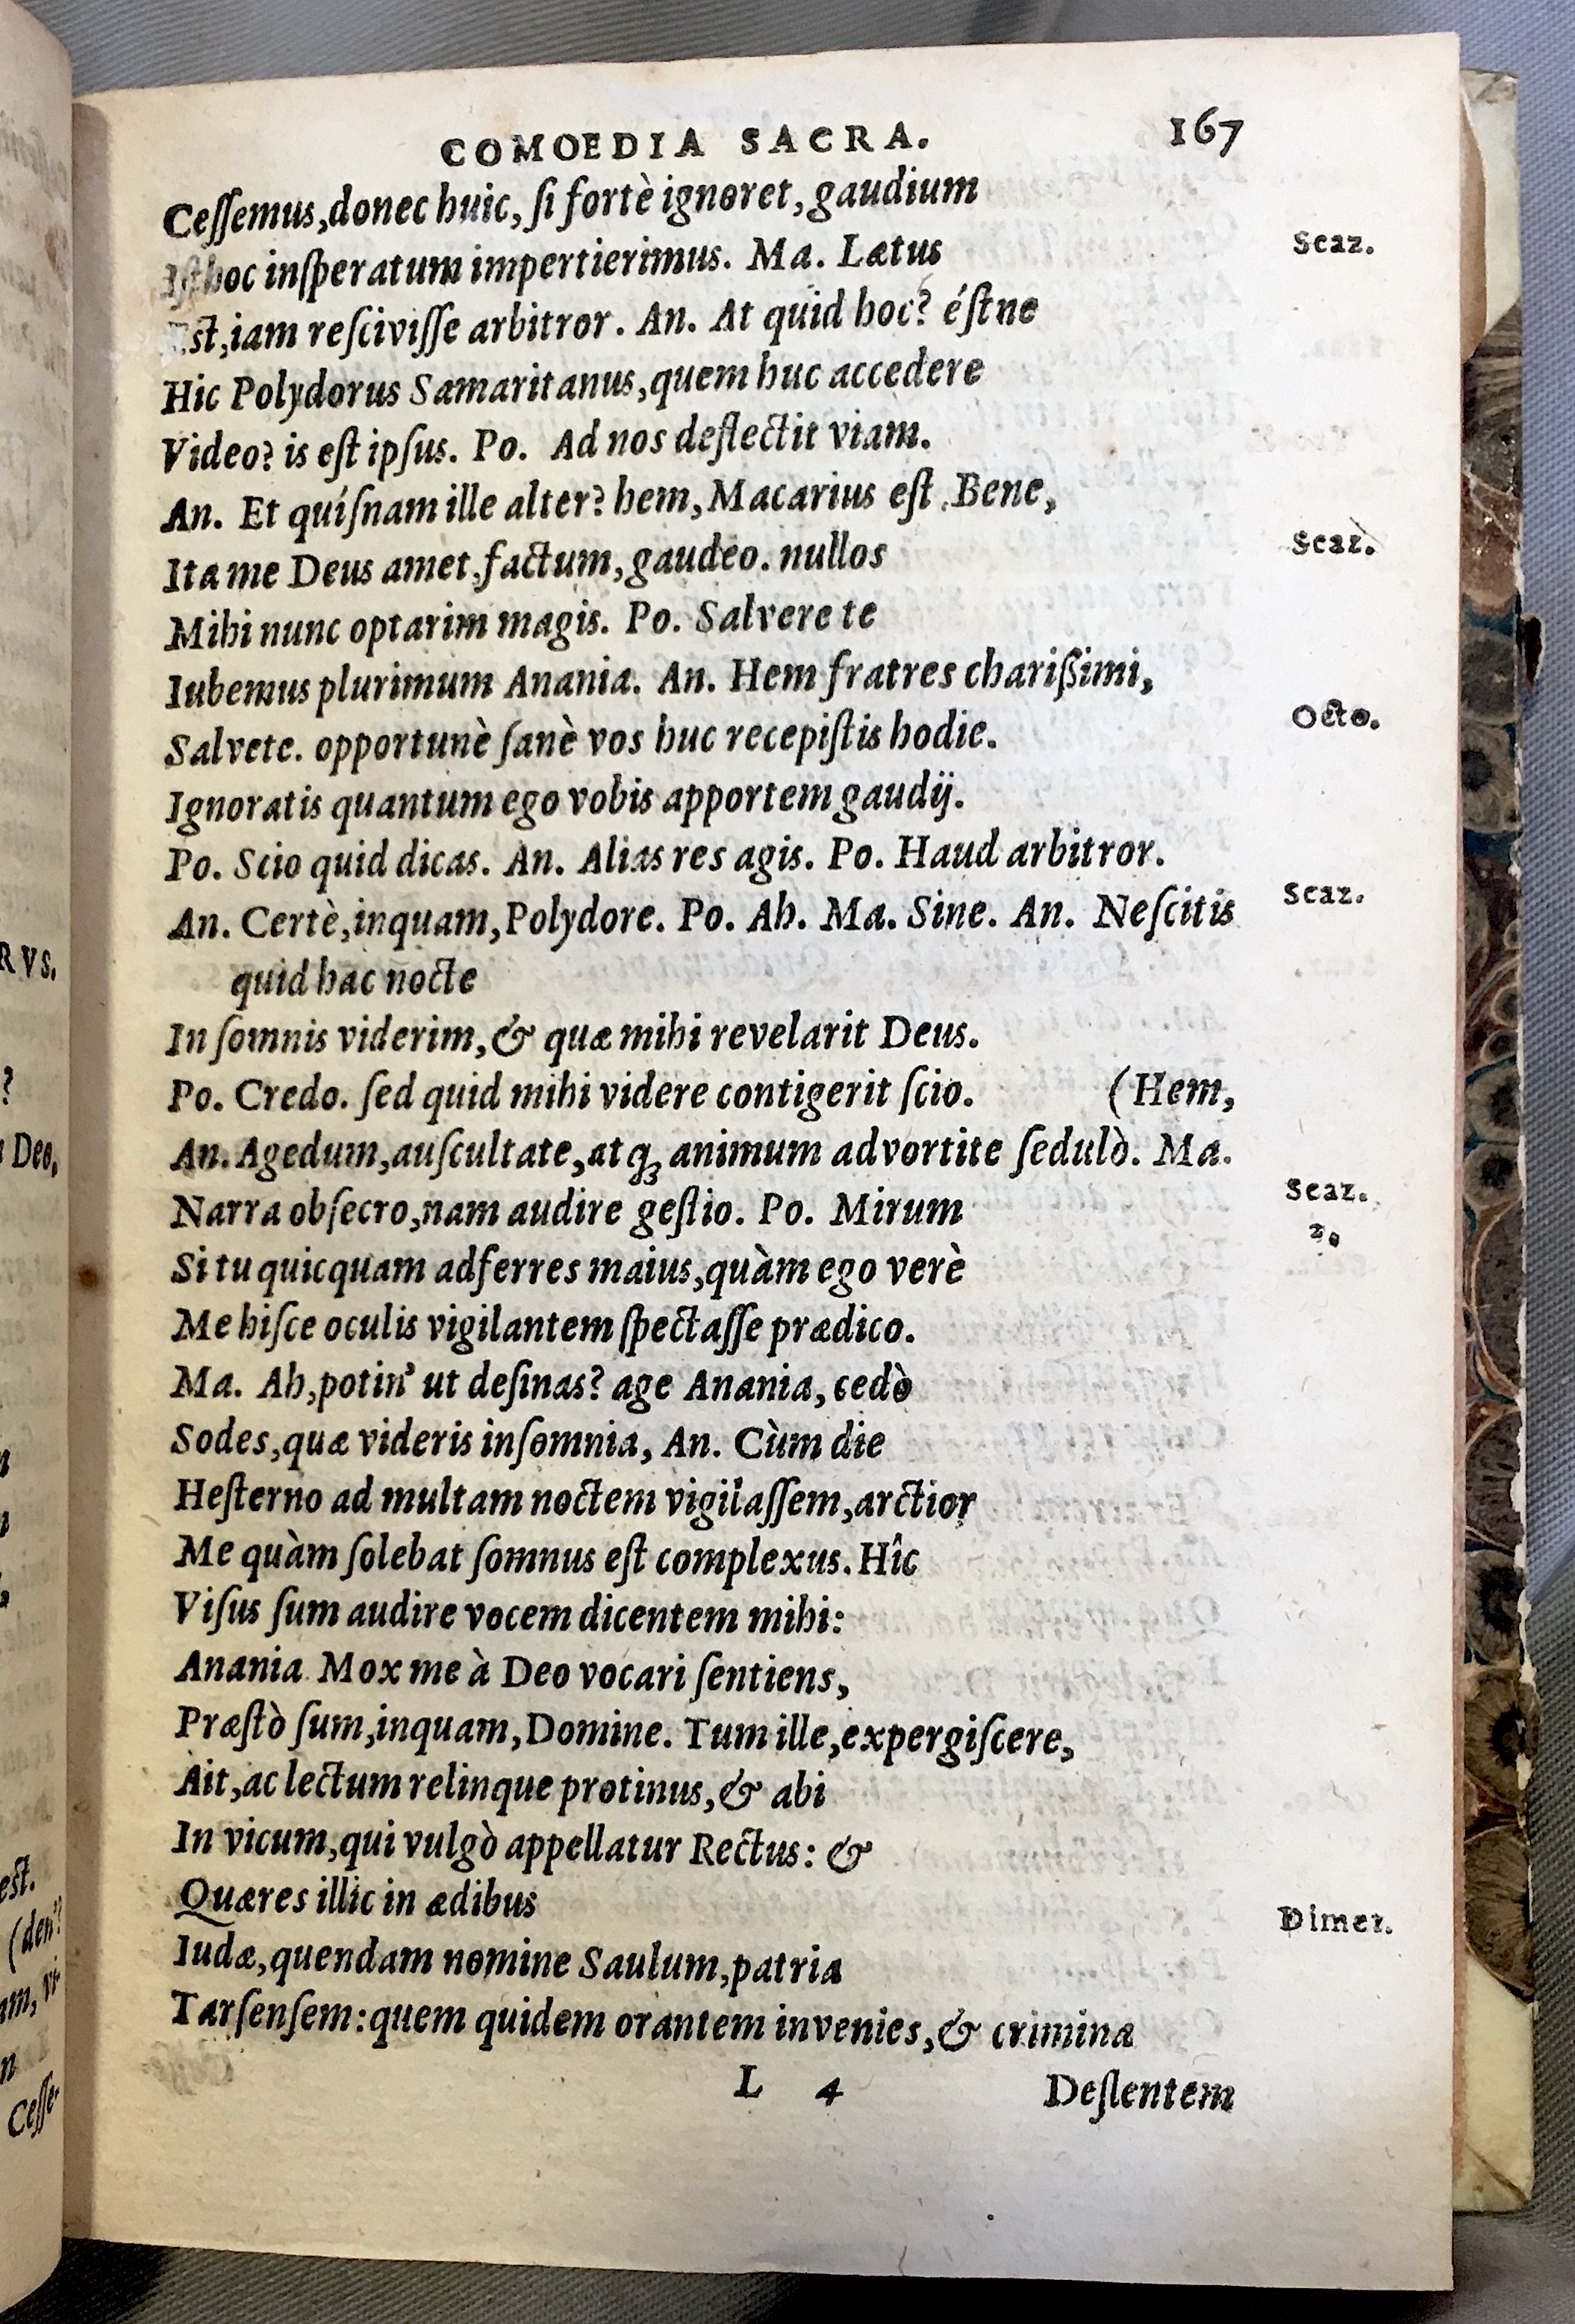 COMOEDIA SACRA. 167
Ceſſemus,donec huic, ſi fortè ignoret, gaudium
Iſthoc inſperatum impertierimus. Ma. Lætus Scaz.
Eſt,iam reſciviſſe arbitror. An. At quid hoc? éſtne
Hic Polydorus Samaritanus,quem huc accedere
Video? is eſt ipſus. Po. Ad nos deflectit viam.
An. Et quíſnam ille alter? hem,Macarius eſt. Bene,
Ita me Deus amet,factum,gaudeo. nullos Scaz.
Mihi nunc optarim magis. Po. Salvere te
Iubemus plurimum Anania. An. Hem fratres charißimi,
Salvete. opportunè ſanè vos huc recepiſtis hodie. Octo.
Ignoratis quantum ego vobis apportem gaudij.
Po. Scio quid dicas. An. Alias res agis. Po. Haud arbitror.
An. Certè,inquam,Polydore. Po. Ah. Ma. Sine. An. Neſcitis Scaz.
quid hac nocte
In ſomnis viderim,& quæ mihi revelarit Deus.
Po. Credo. ſed quid mihi videre contigerit ſcio. (Hem,
An. Agedum,auſcultate,atq; animum advortite ſedulò. Ma.
Narra obſecro,nam audire geſtio. Po. Mirum Scaz.
2.
Si tu quicquam adferres maius,quàm ego verè
Me hiſce oculis vigilantem ſpectaſſe prædico.
Ma. Ah,potin' ut deſinas? age Anania, cedò
Sodes,quæ videris inſomnia, An. Cùm die
Heſterno ad multam noctem vigilaſſem,arctior
Me quàm ſolebat ſomnus eſt complexus. Hîc
Viſus ſum audire vocem dicentem mihi:
Anania. Mox me à Deo vocari ſentiens,
Præſtò ſum,inquam,Domine. Tum ille,expergiſcere,
Ait,ac lectum relinque protinus,& abi
In vicum,qui vulgò appellatur Rectus: &
Quæres illic in ædibus Dimet.
Iudæ,quendam nomine Saulum,patria
Tarſenſem:quem quidem orantem invenies,& crimina
L 4 Deflentem